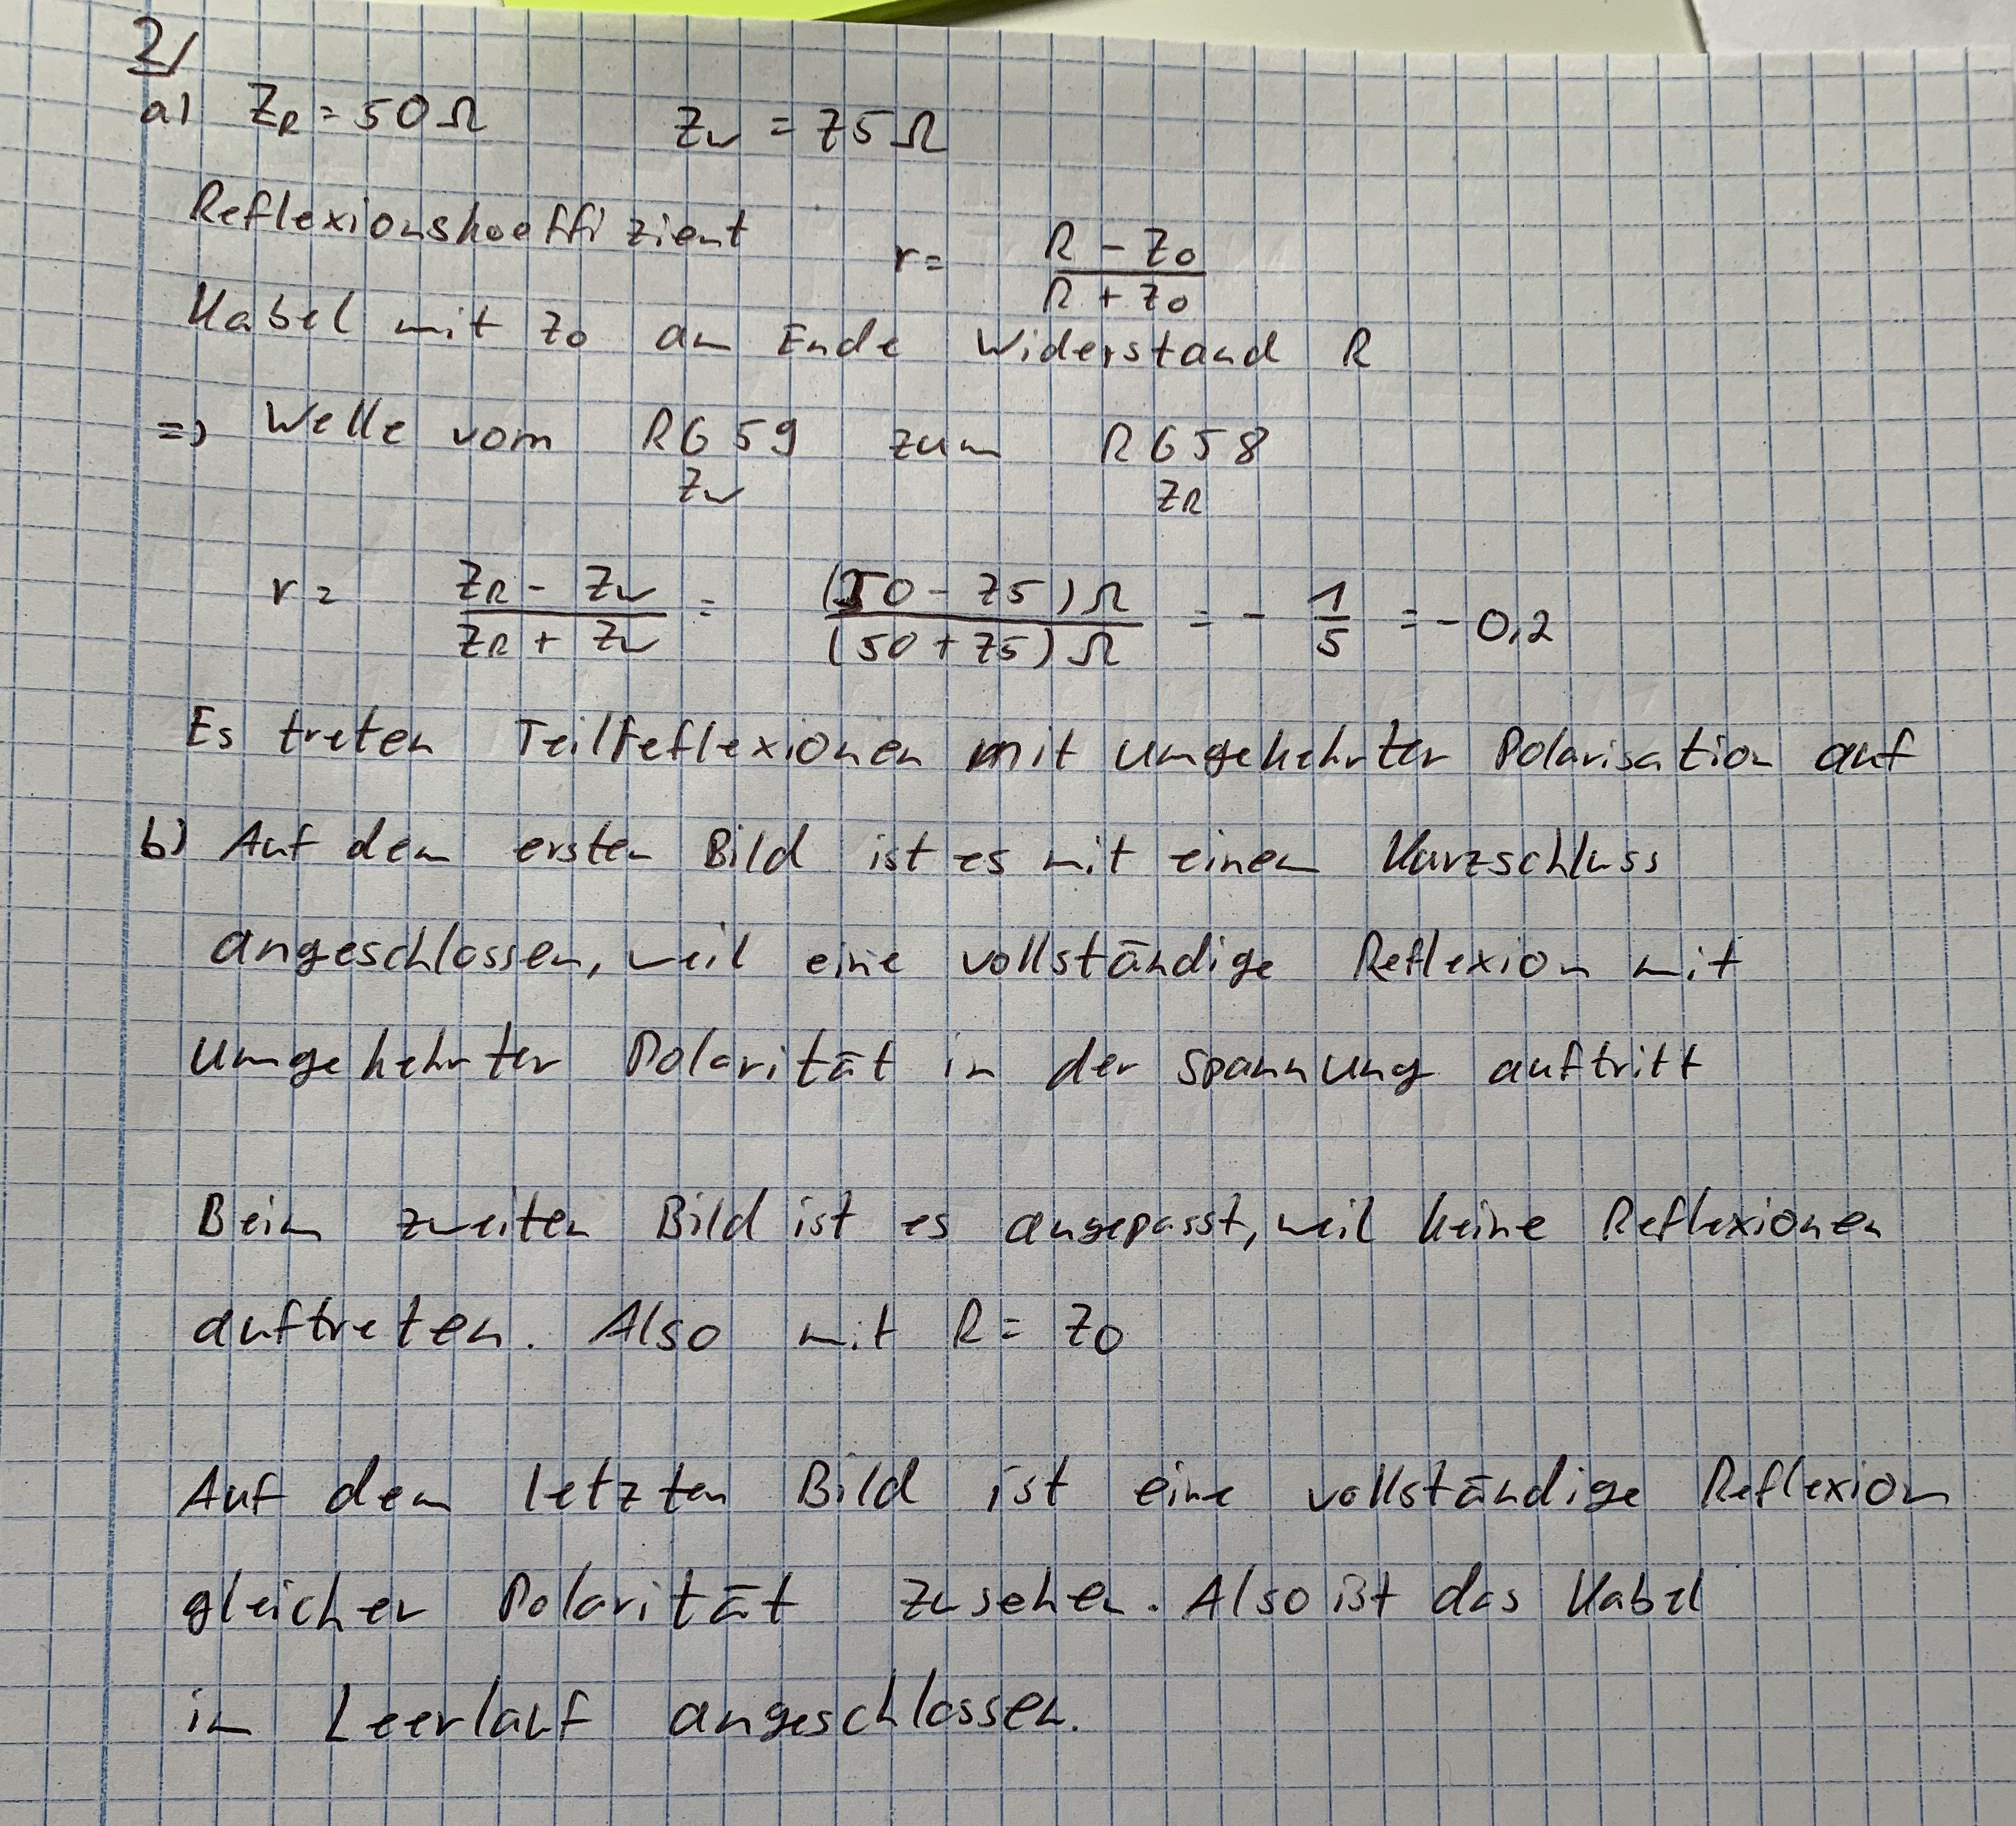 2/
a) Z_R = 50 Ω Z_W = 75 Ω
Reflexionskoeffizient r = (R - Z0)/(R + Z0)
Kabel mit Z0 am Ende Widerstand R
=> Welle vom RG59 zum RG58
Z_W Z_R
r = (Z_R - Z_W)/(Z_R + Z_W) = ((50 - 75) Ω)/((50 + 75) Ω) = - 1/5 = -0,2
Es treten Teilreflexionen mit umgekehrter Polarisation auf
b) Auf dem ersten Bild ist es mit einem Kurzschluss
angeschlossen, weil eine vollständige Reflexion mit
umgekehrter Polarität in der Spannung auftritt
Beim zweiten Bild ist es angepasst, weil keine Reflexionen
auftreten. Also mit R = Z0
Auf dem letzten Bild ist eine vollständige Reflexion
gleicher Polarität zu sehen. Also ist das Kabel
im Leerlauf angeschlossen.